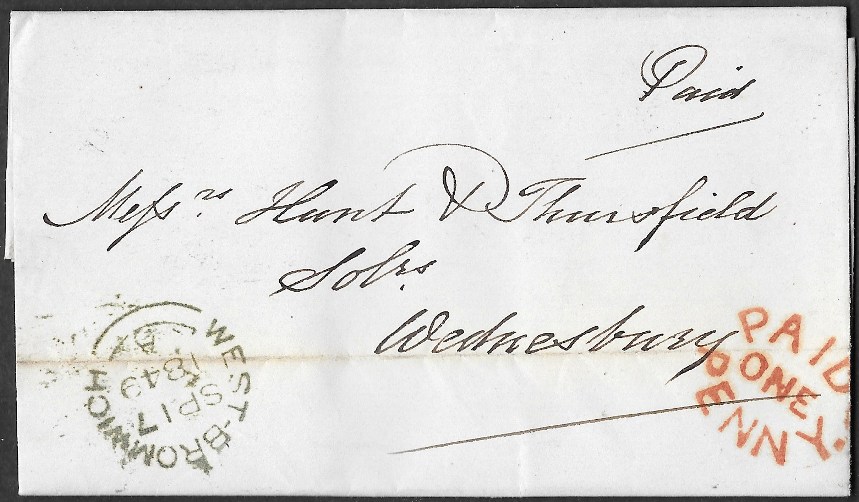 Paid
Meſsrs Hunt & Thursfield
Solrs
Wednesbury
WEST-BROMWICH
A
1849
SP 17
PAID
ONE
PENNY